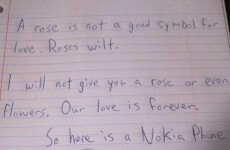 A rose is not a good symbol for
love. Roses wilt.
I will not give you a rose or even
flowers. Our love is forever.
So here is a Nokia Phone